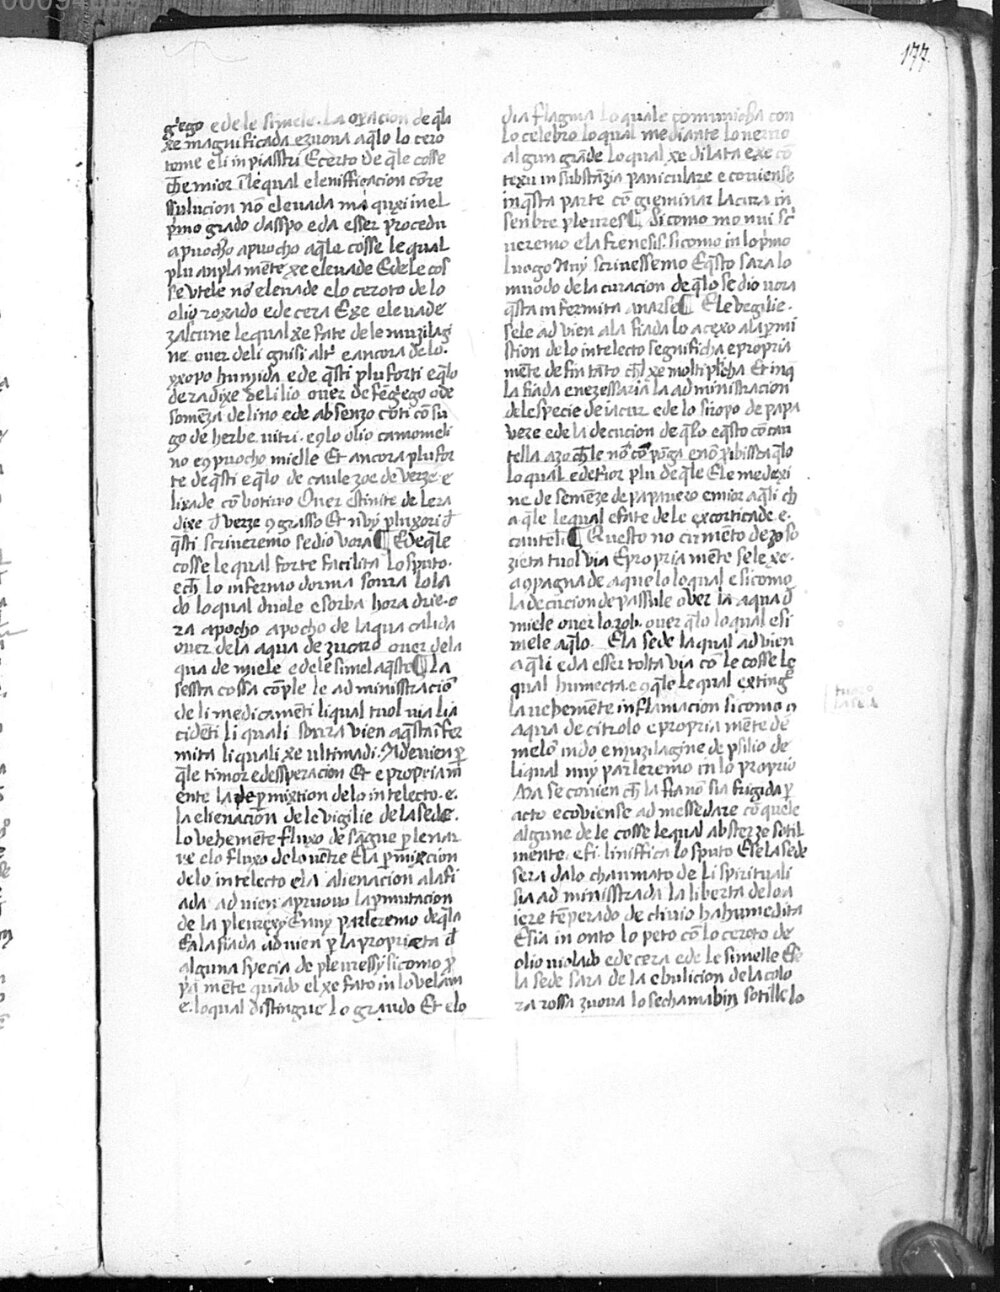 177
gꝛego e de le simele. La oracion de q̄la
xe magnificada ezuova aq̄lo lo cero
tome e li inpiastri E certo de q̄le cosse
che mior ī leq̄ual e lenifficacion cōre
ssulucion nō elevada ma quaxi inel
p̄mo grado daspo e da esser procedu
a puocho apuocho aq̄le cosse le qual
plu anpla mēte xe elevade E de le cos
se utele nō elevade e lo ceroto de lo
olio roxado e de cera E xe elevade
zascune le qual xe fate de le muzilagi
ne over de li gnisi altꝛ e ancora de lo
yxopo humida e de q̄sti plu forti e q̄lo
de radixe de lilio over de fēgrego o de
somēza de lino e de absenzo cōti cō su
go de herbe vitri. e q̄lo olio camomeli
no e ꝯ puocho mielle Et ancora plu for
te de q̄sti e q̄lo de caulezoe de verze e
lixade cō botiro Over
dixe d̄ verze ꝯ grasso Et nuy plu xori d̄
q̄sti scriveremo se dio vora ¶ E de q̄le
cosse le qual forte facilita lo sputo.
e ch̄ lo infermo dorma sovra lo la
do lo qual duole e sorba hora drie o
ra apocho apocho de laqua calida
over de la aqua de zucaro over de la
qua de miele e de le simel a q̄sto ¶ La
sessta cossa cōple le administracio
de li medicamēti li qual tuol via li a
cidēti li quali sovra vien a q̄sta ifer
mita li quali xe ultimadi. Adevien p̄
q̄le timor e dessperacion Et e propriam
ente la p̄mixtion de lo intelecto. e.
la elienacion de le vigilie de la sede.
lo vehemēte fluxo de sāgue p̄ le nar
xe e lo fluxo de lo vētre E la p̄mixcion
de lo intelecto e la alienacion ala fi
ada advien apruovo la p̄mutacion
de la pleurexy E nuy parleremo de q̄la
E ala fiada advien p̄ la proprieta d̄
alguna specia de pleuressy si como p̄
pa mēte quādo el xe fato in lo velam
e. lo qual disstingue lo grando Et e lo
dia flagma lo quale comunicha con
lo celebro lo qual mediante lo nervo
algun grāde lo qual xe dilata e xe cō
texu in substāzia paniculare e coviense
in q̄sta parte cō gieminar la cura in
senbre pleures ¶ Si como mo nui sc̄
veremo e la frenesis. si como in lo p̄mo
luogo nuy scrivessemo E q̄sto sara lo
muodo de la curacion de q̄lo se dio vora
q̄sta infermita anarse ¶ E le vegilie.
se le advien ala fiada lo acexo ala p̄mi
stion de lo intelecto segnificha e propria
mēte de fin tāto ch̄l xe moltiplicha Et in q̄
la fiada e nezessaria la administracion
de le specie de iacur e de lo siropo de papa
vere e de la decucion de q̄lo e q̄sto cō cau
tella azo ch̄ le nō cō pōga e nō p̄ibissea q̄lo
lo qual e de fior plu de q̄le E le medexi
ne de semēze de papavero e mior a q̄li ch̄
a q̄le le qual e fate de le excorticade e.
cauteli ¶ Questo no cirmēto de zo so
zieta tuol via E propria mēte se le xe.
a ꝯpagnade a quelo lo qual e si como
la decucion de passule over la aqua d̄
miele over lo rob. over q̄lo lo qual e si
mele a q̄lo. E la sede la qual advien
a q̄li e da esser tolta via cō le cosse le
qual humecta. e ꝯ q̄le le qual extinge
la vehemēte inflamacion si como ꝯ
aqua de citrolo e propria mēte de
melō indo e muzilagine de psilio de
li qual nuy parleremo in lo proprio
Ma se covien ch̄ la sia nō sia frigida p̄
acto e coviense ad messedare cō quele
algune de le cosse le qual absterze sotil
mente. e si. liniffica lo sputo E se la sede
sera dalo chaumato de li spirituali
sia administrada la liberta de lo a
iere tēperado de chivio ha humedita
E sia in onto lo peto cō lo ceroto de
olio violado e de cera e de le simelle E se
la sede sara de la ebulicion de la colo
ra rossa zuova lo sechamabin sotille lo